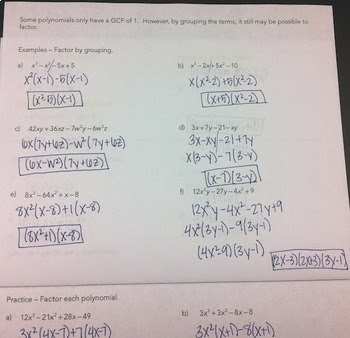 Some polynomials only have a GCF of 1. However, by grouping the terms, it still may be possible to
factor.
Examples – Factor by grouping.
a) x³ – x² – 5x + 5
x²(x-1)-5(x-1)
(x²-5)(x-1)
b) x³ – 2x + 5x² – 10
x(x²-2)+5(x²-2)
(x+5)(x²-2)
c) 42xy + 36xz – 7w²y – 6w²z
6x(7y+6z)-w²(7y+6z)
(6x-w²)(7y+6z)
d) 3x + 7y – 21 – xy
3x-xy-21+7y
x(3-y)-7(3-y)
(x-7)(3-y)
e) 8x³ – 64x² + x – 8
8x²(x-8)+1(x-8)
(8x²+1)(x-8)
f) 12x²y – 27y – 4x² + 9
12x²y-4x²-27y+9
4x²(3y-1)-9(3y-1)
(4x²-9)(3y-1)
(2x-3)(2x+3)(3y-1)
Practice – Factor each polynomial.
a) 12x³ – 21x² + 28x – 49
3x²(4x-7)+7(4x-7)
b) 3x³ + 3x² – 8x – 8
3x²(x+1)-8(x+1)